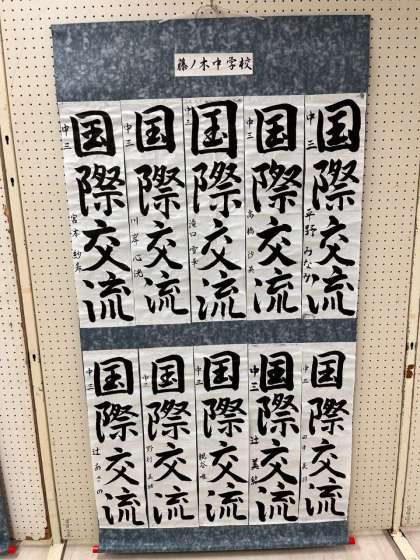 藤ノ木中学校
国際交流
中二 平野みなか
国際交流
中三 高橋沙英
国際交流
中三 滝口
国際交流
中三 川岸心
国際交流
中三 宮本紗寿
国際交流
中二
国際交流
中三 辻美
国際交流
中三 親谷雅
国際交流
中三 野村
国際交流
中三 辻あさの